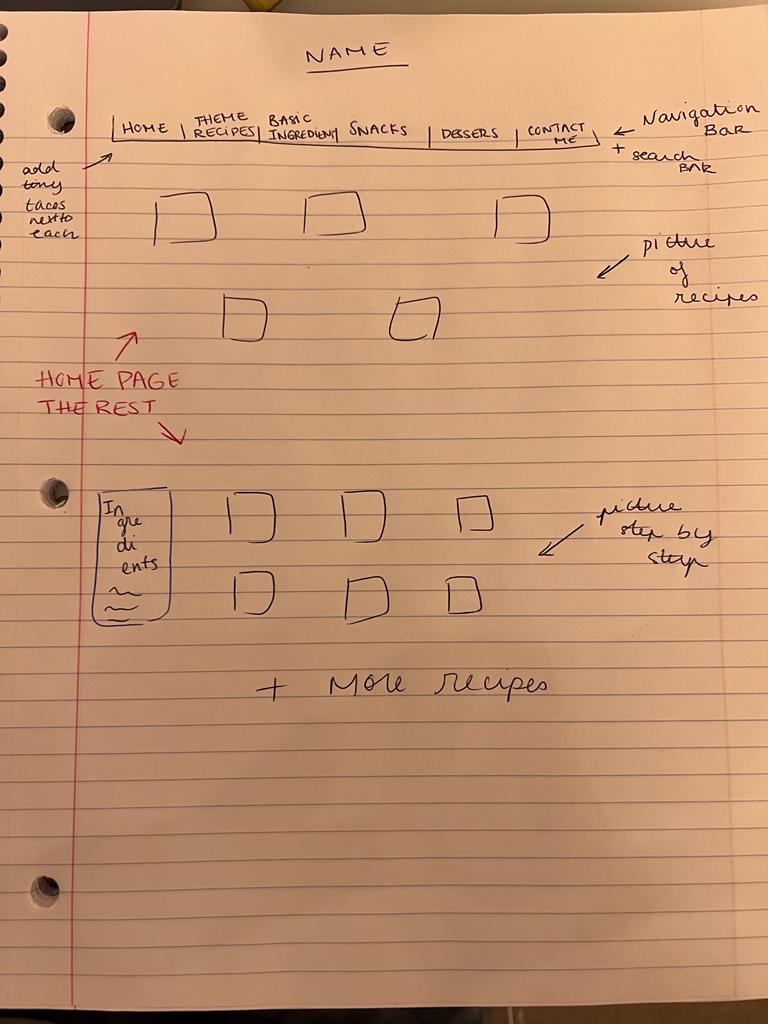 NAME
HOME | THEME RECIPES | BASIC INGREDIENT | SNACKS | DESSERS | CONTACT ME
← Navigation
BAR
+ search
BAR
add
tiny
tacos
next to
each
picture
of
recipes
HOME PAGE
THE REST
In
gre
di
ents
picture
step by
step
+ More recipes